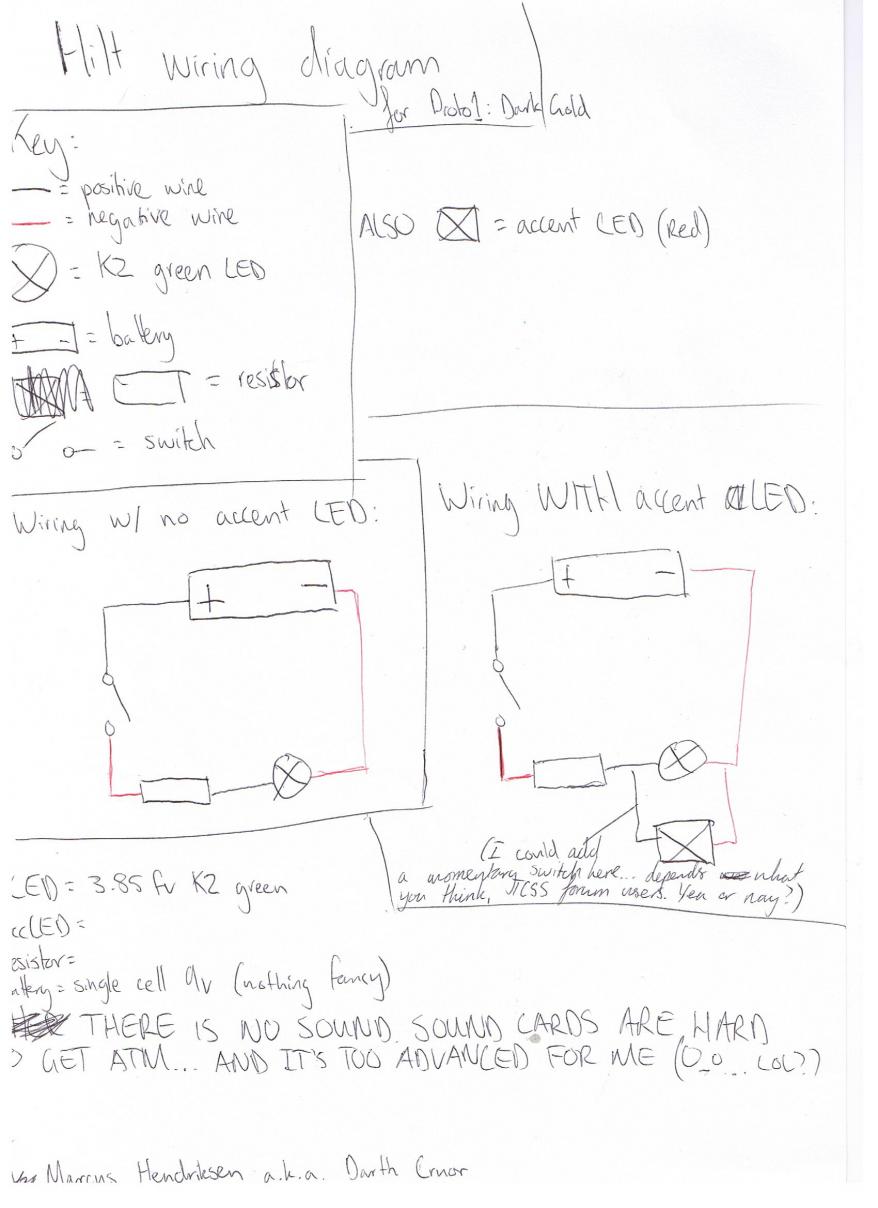 Hilt wiring diagram
for Proto1: Dark Gold
Key:
= positive wire
= negative wire
= K2 green LED
+ - = battery
= resistor
= switch
ALSO = accent LED (red)
Wiring w/ no accent LED:
+ -
Wiring WITH accent LED:
+ -
(I could add
a momentary switch here... depends what
you think, forum users. Yea or nay?)
LED = 3.85 fv K2 green
ccLED =
esistor =
attery = single cell 9v (nothing fancy)
THERE IS NO SOUND. SOUND CARDS ARE HARD
GET ATM... AND IT'S TOO ADVANCED FOR ME (O_O... LOL?)
Marcus Hendriksen a.k.a. Darth Cruor